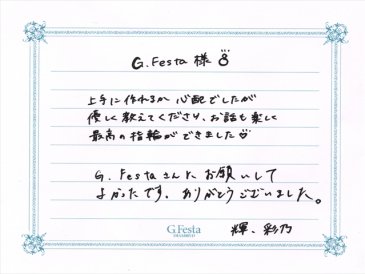 G.Festa 様
上手に作れるか 心配でしたが
優しく教えてくださり、お話も楽しく
最高の指輪ができました
G. Festaさんに、お願いして
よかったです。ありがとうございました。
G.Festa
輝、彩乃